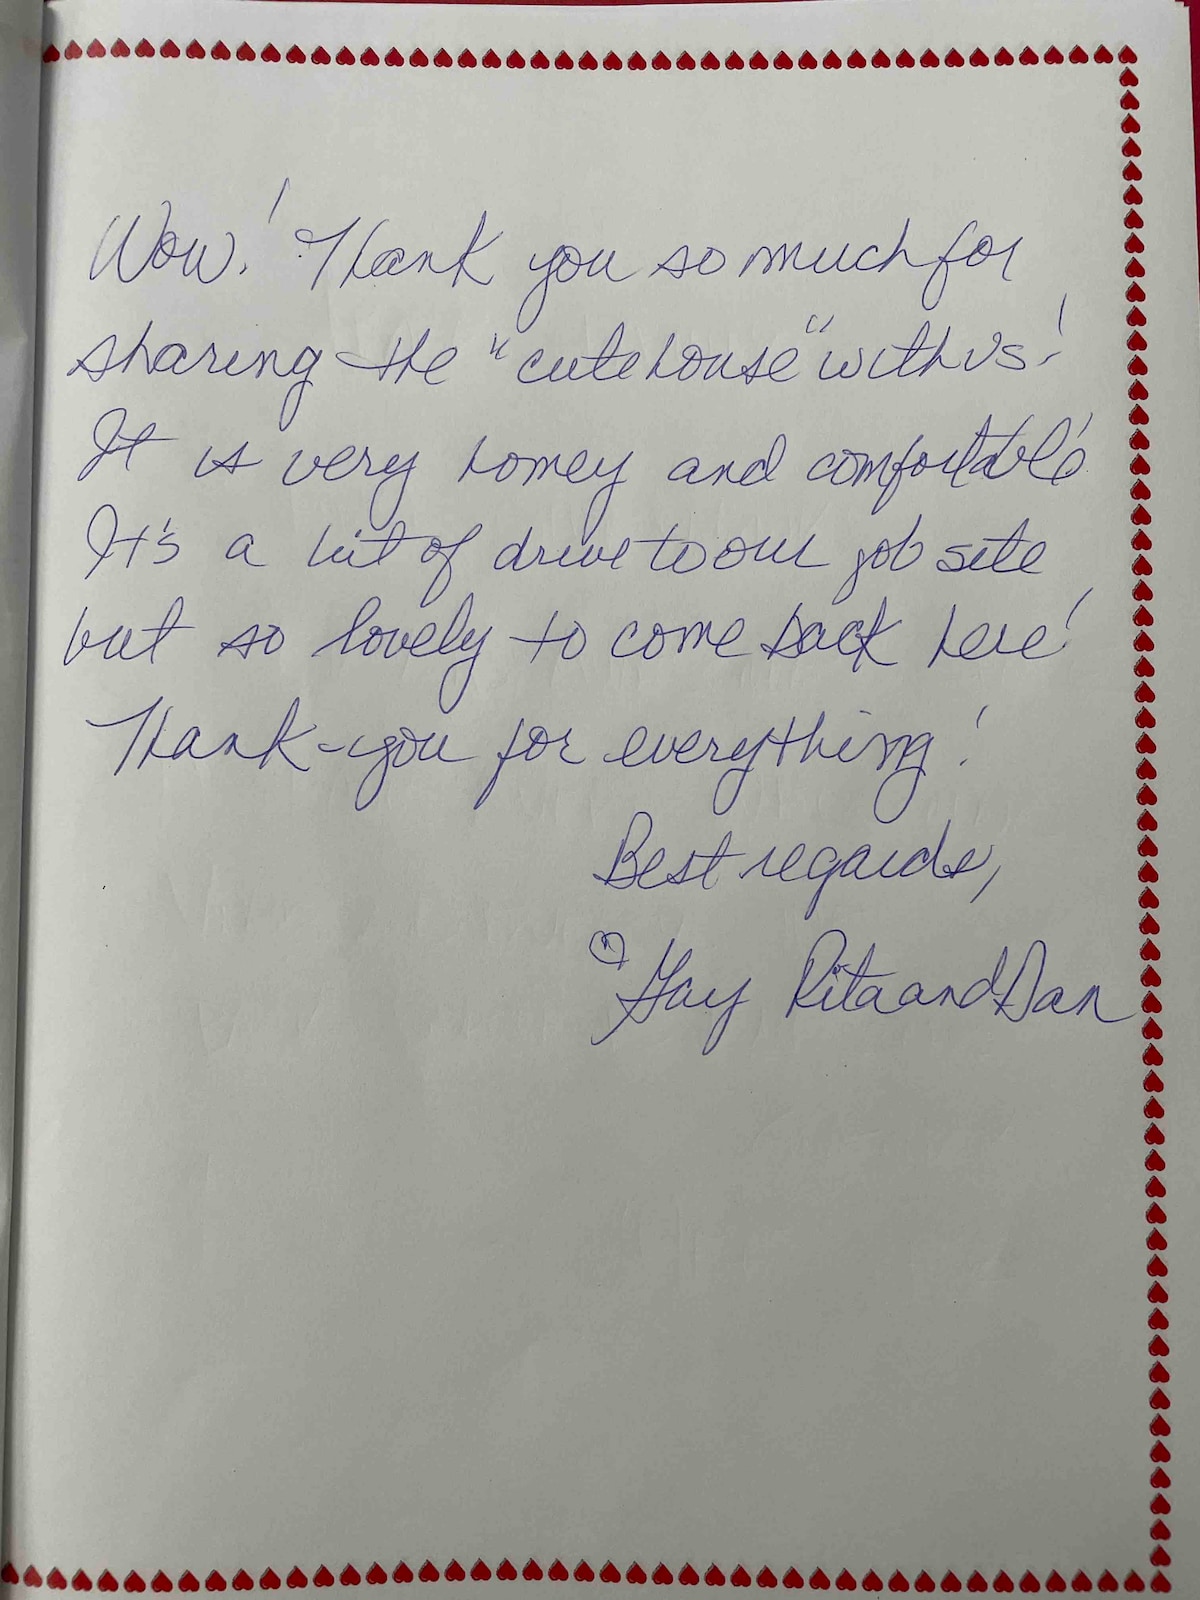 Wow! Thank you so much for
sharing the "cute house" with us!
It is very homey and comfortable!
It's a bit of drive to our job site
but so lovely to come back here!
Thank-you for everything!
Best regards,
♡ Gay Rita and Dan